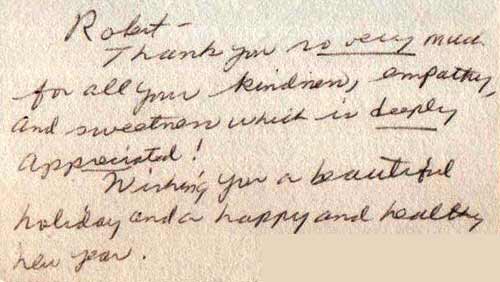 Robert -
Thank you so very much
for all your kindness, empathy,
and sweetness which is deeply
appreciated!
Wishing you a beautiful
holiday and a happy and healthy
new year.